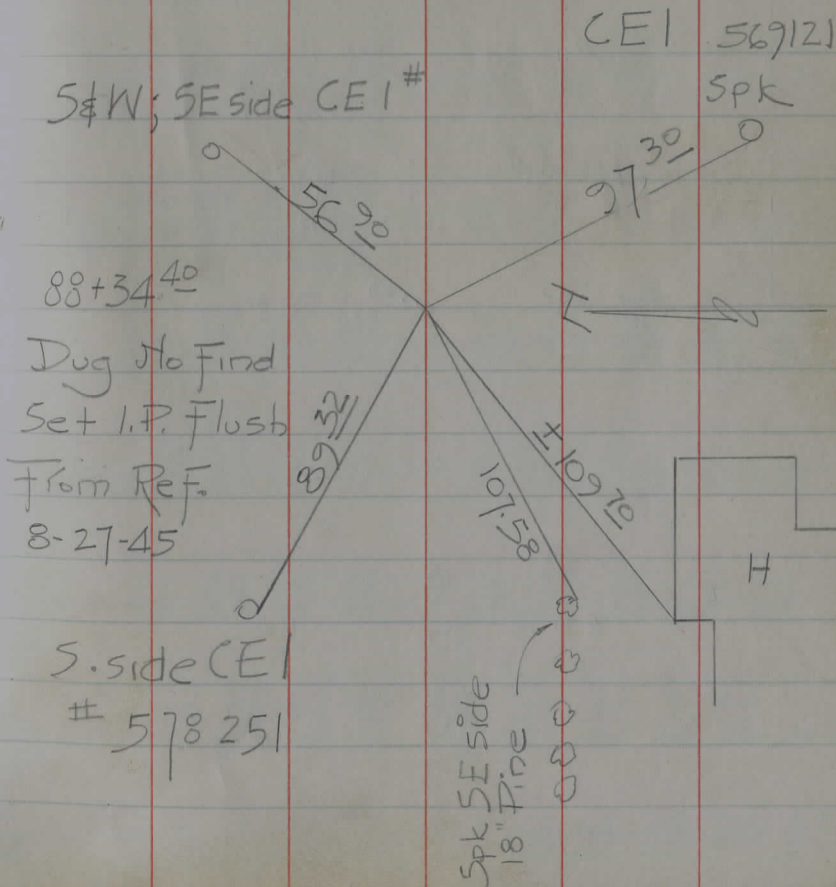 CEI 569121
Spk
S&W; SE side CEI #
97.30
56.90
88+34.40
Dug No Find
Set I.P. Flush
From Ref.
8-27-45
89.32
107.58
±109.70
H
S. side CEI
# 578 251
Spk SE side
18" Pine